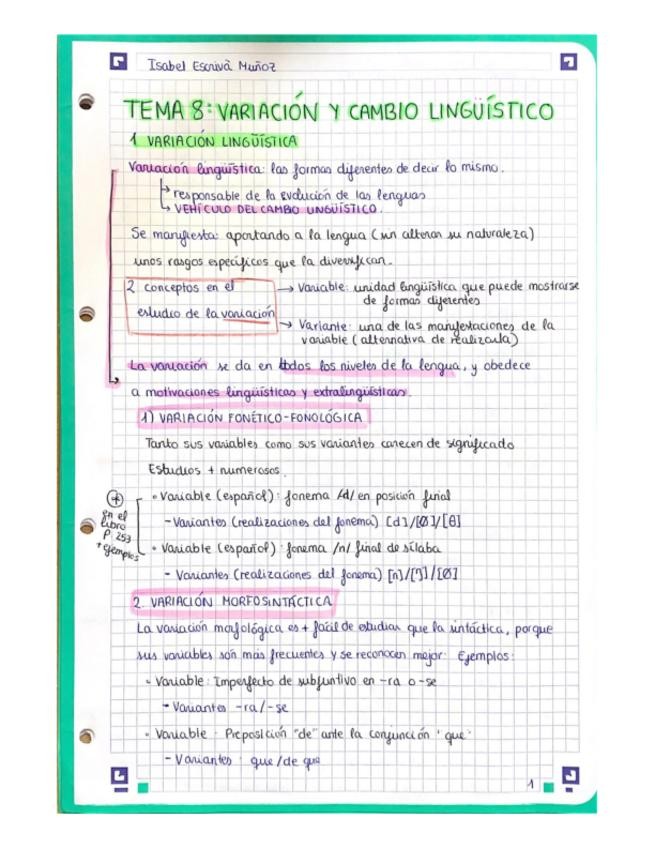 Isabel Escrivà Muñoz
TEMA 8: VARIACIÓN Y CAMBIO LINGÜÍSTICO
1 VARIACIÓN LINGÜÍSTICA
Variación lingüística: las formas diferentes de decir lo mismo.
↳ responsable de la evolución de las lenguas
↳ VEHÍCULO DEL CAMBIO LINGÜÍSTICO.
Se manifiesta: aportando a la lengua (sin alterar su naturaleza)
unos rasgos específicos que la diversifican.
2 conceptos en el
estudio de la variación
→ Variable: unidad lingüística que puede mostrarse
de formas diferentes
→ Variante: una de las manifestaciones de la
variable (alternativa de realizarla)
La variación se da en todos los niveles de la lengua, y obedece
a motivaciones lingüísticas y extralingüísticas.
1) VARIACIÓN FONÉTICO-FONOLÓGICA
Tanto sus variables como sus variantes carecen de significado
Estudios + numerosos.
+
en el
libro
P. 253
+ ejemplos
• Variable (español): fonema /d/ en posición final
- Variantes (realizaciones del fonema) [d]/[Ø]/[θ]
• Variable (español): fonema /n/ final de sílaba
- Variantes (realizaciones del fonema) [n]/[ŋ]/[Ø]
2. VARIACIÓN MORFOSINTÁCTICA
La variación morfológica es + fácil de estudiar que la sintáctica, porque
sus variables són más frecuentes y se reconocen mejor. Ejemplos:
• Variable: Imperfecto de subjuntivo en -ra o -se
- Variantes -ra/-se
• Variable: Preposición "de" ante la conjunción "que"
- Variantes: que/de que
1